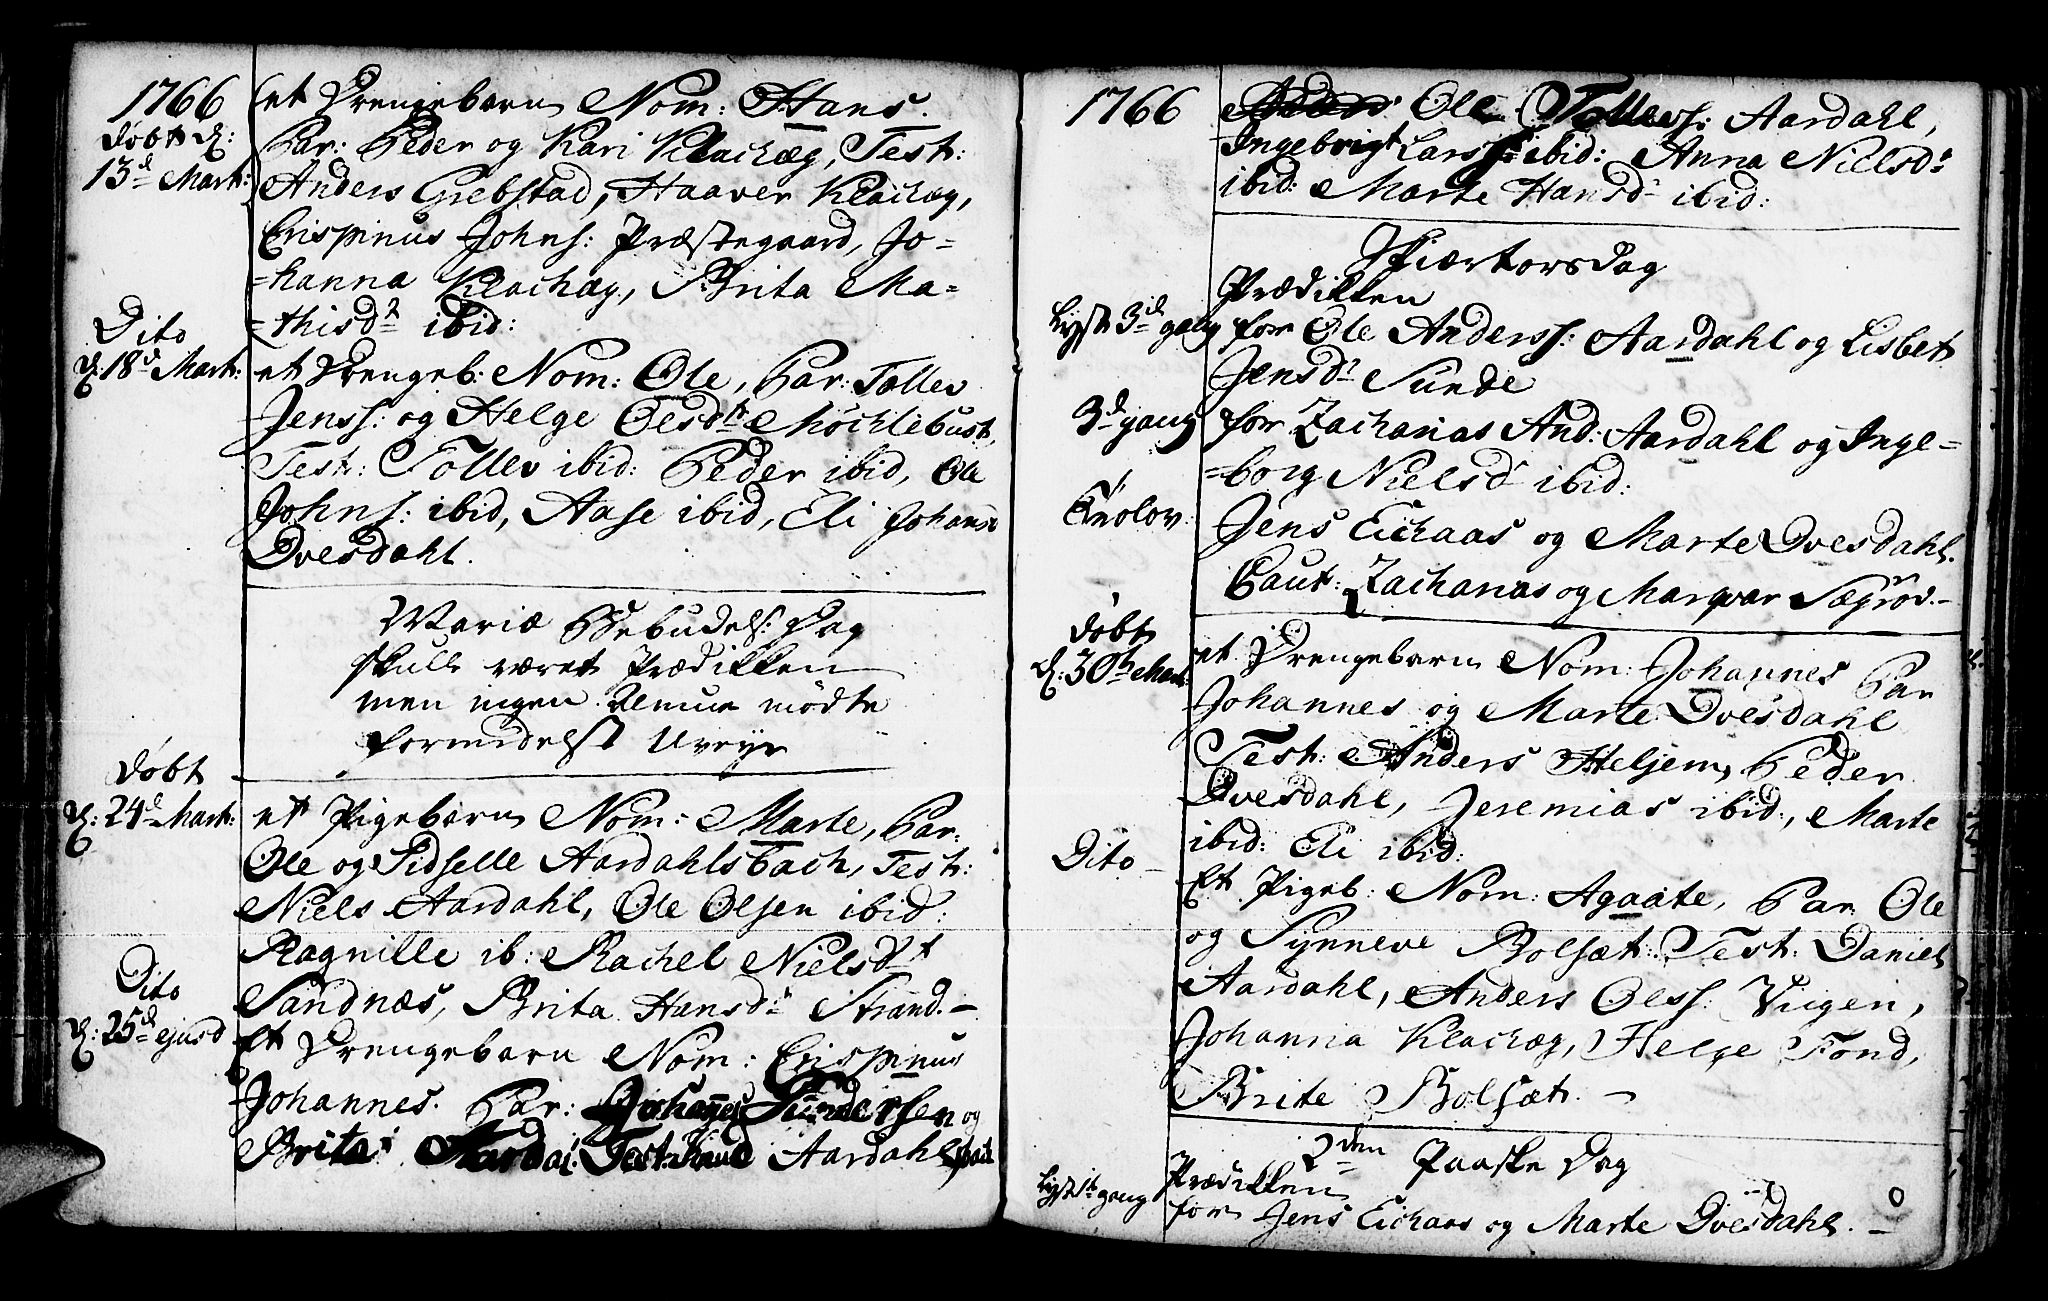 1766
døbt d:
13d Mart:
et Drengebarn Nom: Hans.
Par: Peder og Kari Klachæg, Test:
Anders Grebstad, Haaver Klachæg,
Crispinus Johns: Præstegaard, Jo=
=hanna Klachæg, Brita Ma=
=thisdr ibid:
Dito
d: 18d Mart:
et Drengeb: Nom: Ole, Par: Tollev
Jenss: og Helge Olesdtr Møchlebust,
Test: Tollev ibid: Peder ibid, Ole
Johns: ibid, Aase ibid, Eli Johansd
Dvesdahl.
Mariæ Bebudels: Dag
skulle været Prædikken
men ingen Almue mødte
formedelst Uveyr
døbt
d: 24d Mart:
et Pigebarn Nom: Marte, Par:
Ole og Sidselle Aardahlsbach, Test:
Niels Aardahl, Ole Olsen ibid:
Ragnille ib: Rachel Nielsdt
Sandnæs, Brita Hansdr Strand. -
Dito
d: 25d ejusd
Et Drengebarn Nom: Crispinus
Johannes. Par: Johannes Sundersen og
Brita Aardal: Test: Knud Aardahl
1766
Ole Tollevs: Aardahl,
Ingebrigt Larss: ibid: Anna Nielsdr
ibid: Marte Hansdr ibid:
Skiærtorsdag
Prædikken
Lyst 3d gang for Ole Anderss: Aardahl og Lisbet
Jensdr Sunde
3d gang for Zacharias And: Aardahl og Inge=
=borg Nielsd ibid:
Trolov:
Jens Eichaas og Marte Dvesdahl.
Caut: Zacharias og Marqvar Sægrov. -
døbt
d: 30th Mart:
et Drengebarn Nom: Johannes Par
Johannes og Marte Dvesdahl
Test: Anders Heljem, Peder
Dvesdahl, Jeremias ibid:, Marte
ibid: Eli ibid:
Dito -
Et Pigeb: Nom: Agaate, Par Ole
og Synneve Bolsæt: Test: Daniel
Aardahl, Anders Olss: Viigen,
Johanna Klachæg, Helge Fond,
Brite Bolsæt. -
2den Paaske Dag
Prædikken
Lyst 1t gang for Jens Eichaas og Marte Dvesdahl. -